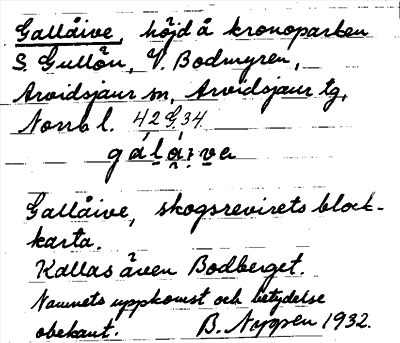 Gallåive, höjd å kronoparken
S. Gullön, V. Bodmyren,
Arvidsjaur sn, Arvidsjaur tg,
Norrb l. 42 G. 34
Gallåive, skogsrevirets block-
karta.
Kallas även Bodberget.
Namnets uppkomst och betydelse
obekant. B. Nyppen 1932.